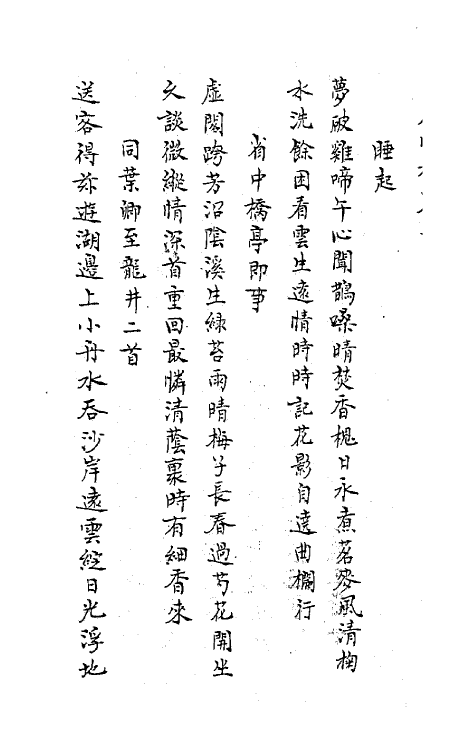 睡起
夢破雞啼午心閒鵲噪晴焚香槐日永煮茗麥風清掬
水洗餘困看雲生遠情時時記花影自遶曲欄行
省中橋亭即事
虛閣跨芳沼陰溪生綠苔雨晴梅子長春過芍花開坐
久談微縱情深首重回最憐清蔭裏時有細香來
同葉卿至龍井二首
送客得茲遊湖邊上小舟水吞沙岸遠雲綻日光浮地